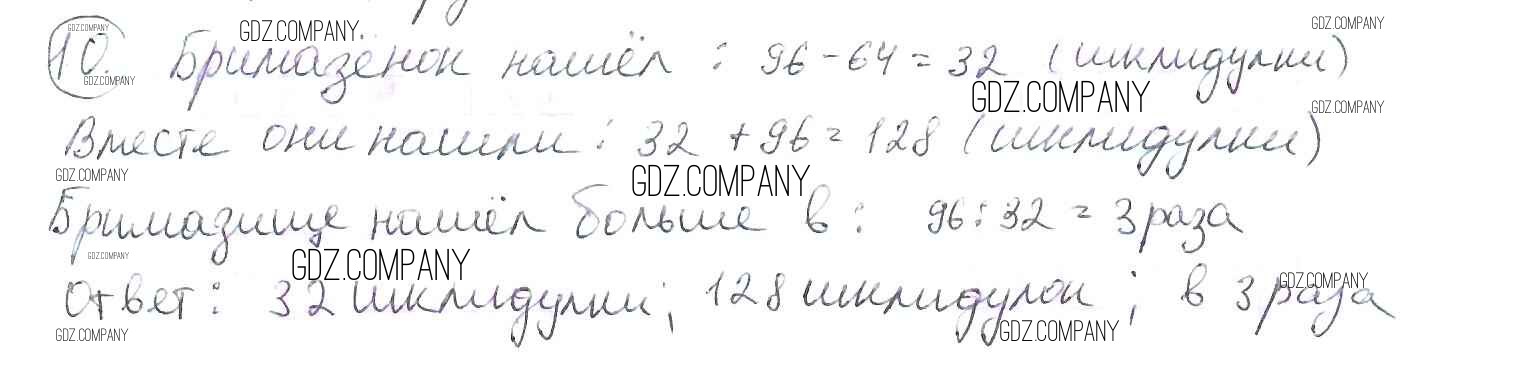 10. Бримазёнок нашёл : 96 - 64 = 32 (шклидулки)
Вместе они нашли : 32 + 96 = 128 (шклидулки)
Бримазище нашёл больше в : 96 : 32 = 3 раза
Ответ : 32 шклидулки; 128 шклидулок ; в 3 раза
GDZ.COMPANY
GDZ.COMPANY
GDZ.COMPANY
GDZ.COMPANY
GDZ.COMPANY
GDZ.COMPANY
GDZ.COMPANY
GDZ.COMPANY
GDZ.COMPANY
GDZ.COMPANY
GDZ.COMPANY
GDZ.COMPANY
GDZ.COMPANY